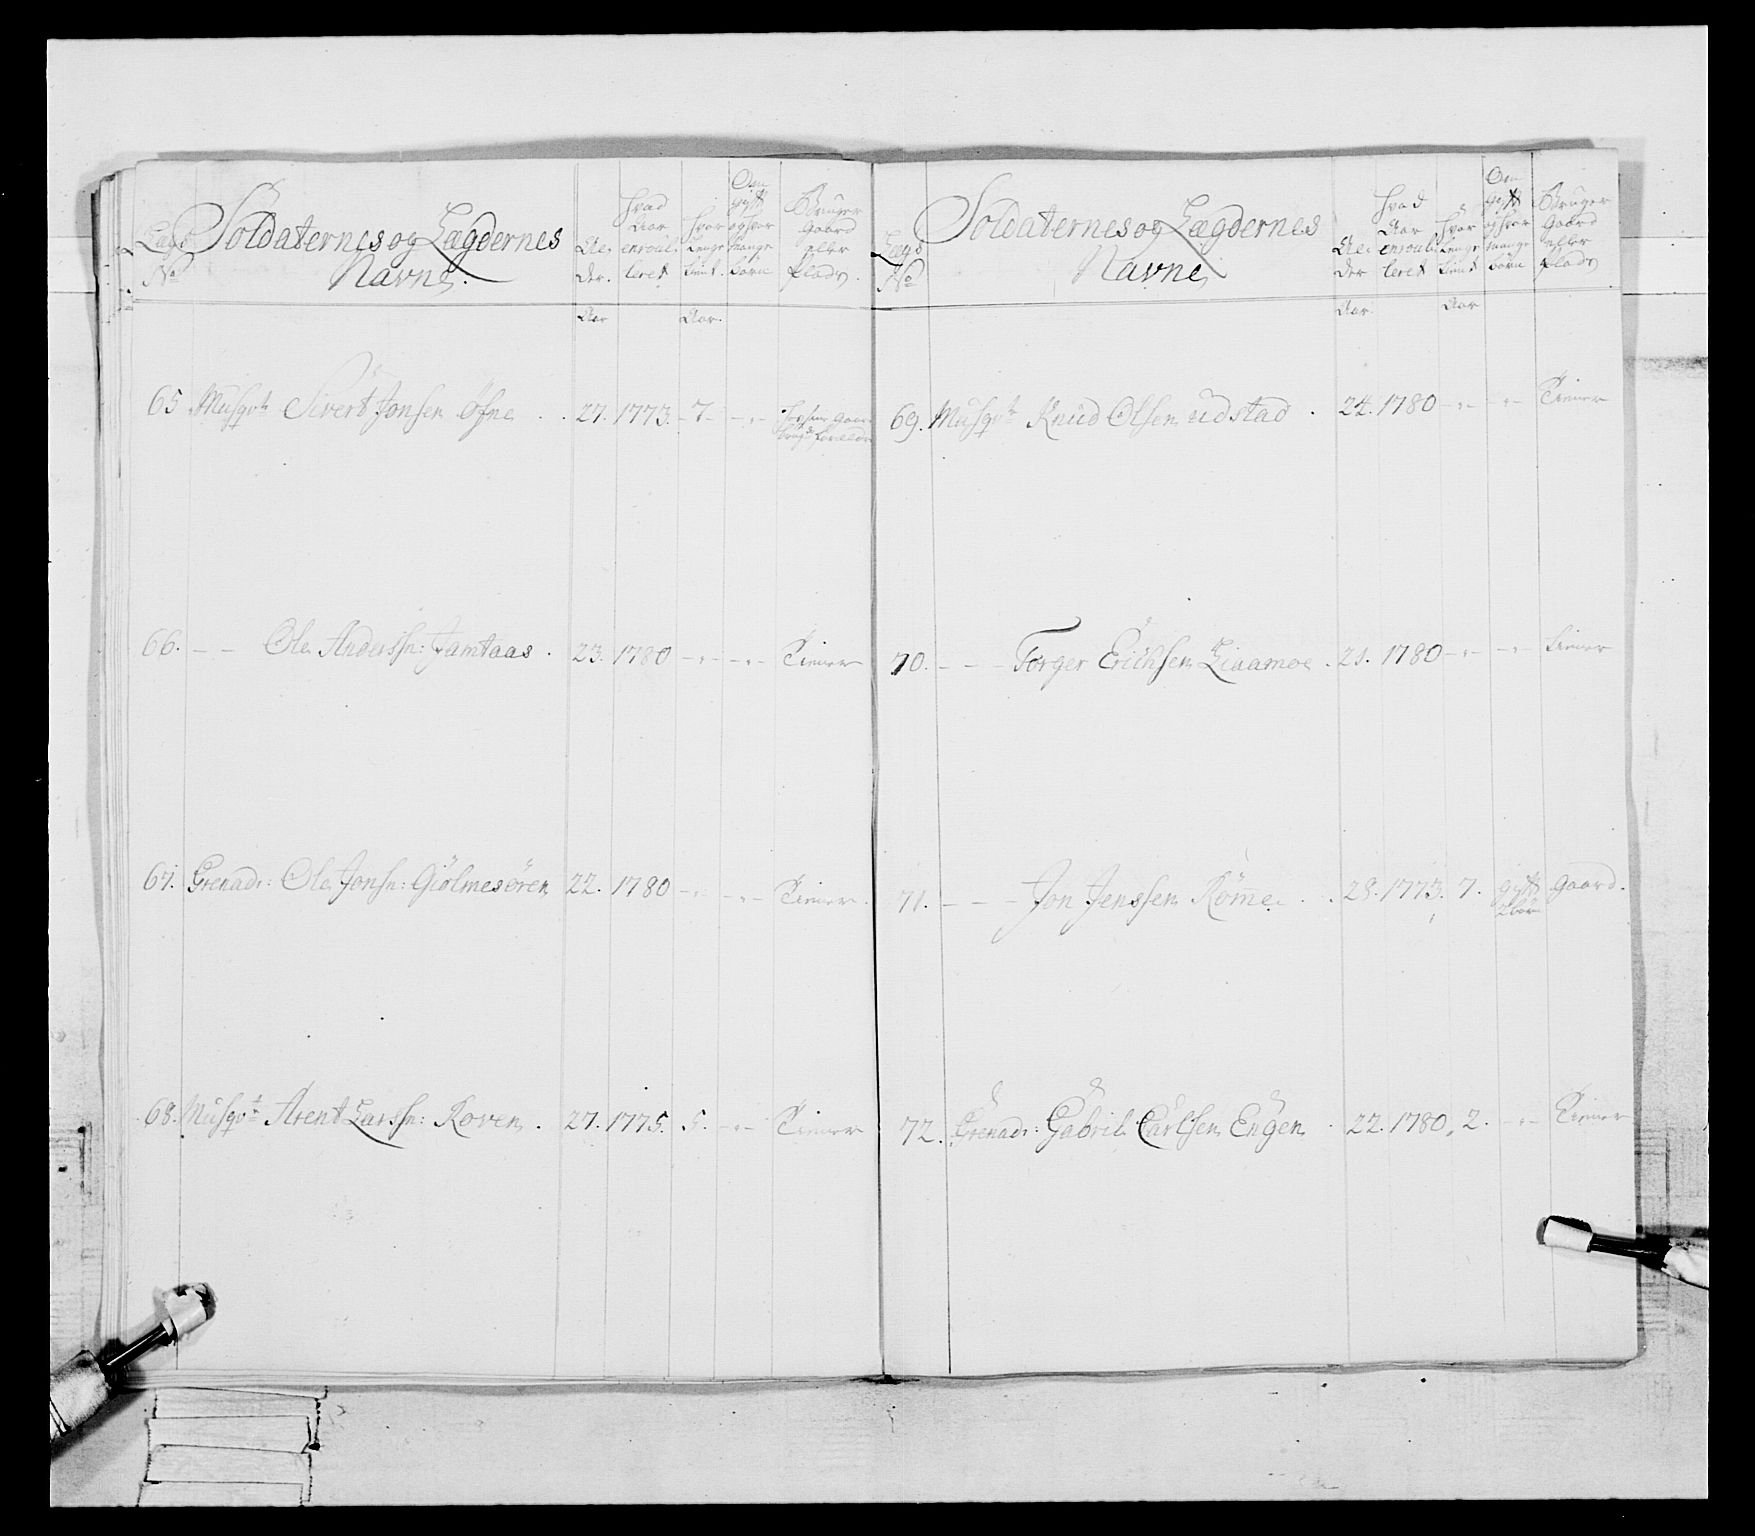 Lægd No
Soldaternes og Lægdernes Navne.
Al- der.
hvad Aar enroul- leret
hvor Lenge tient.
Om gift og hvor mange børn
Bruger Gaard eller Plads.
Aar
Aar.
65 Musqvt: Sivert Jonsen Øfne . . 27. 1773. - 7 - - „ -
66. - - Ole Anderssn: Jamtaas . 23. 1780 - „ - - „ - Tiener
67. Grenadr: Ole Jonsn: Giølmesøren 22. 1780 - „ - - „ - Tiener.
68. Musqvt: Arent Larssn: Koven . 27. 1775. 5. - „ - Tiener
Lægd No
Soldaternes og Lægdernes Navne
Al- der
hvad Aar enroul- leret
hvor Lenge tient
Om gift og hvor mange børn
Bruger Gaard eller Plads
Aar.
Aar
69. Musqvt: Knud Olsen Udstad . 24. 1780 - „ - - „ - Tiener
70. - - - Torger Erichsen Liaamoe . 21. 1780 - „ - - „ - Tiener
71. - - - Jon Jenssen Rømme . . 28. 1773. 7. gift 2 børn Gaard.
72. Grenadr: Gabril Carlsen Engen . 22. 1780. 2. - „ - Tiener